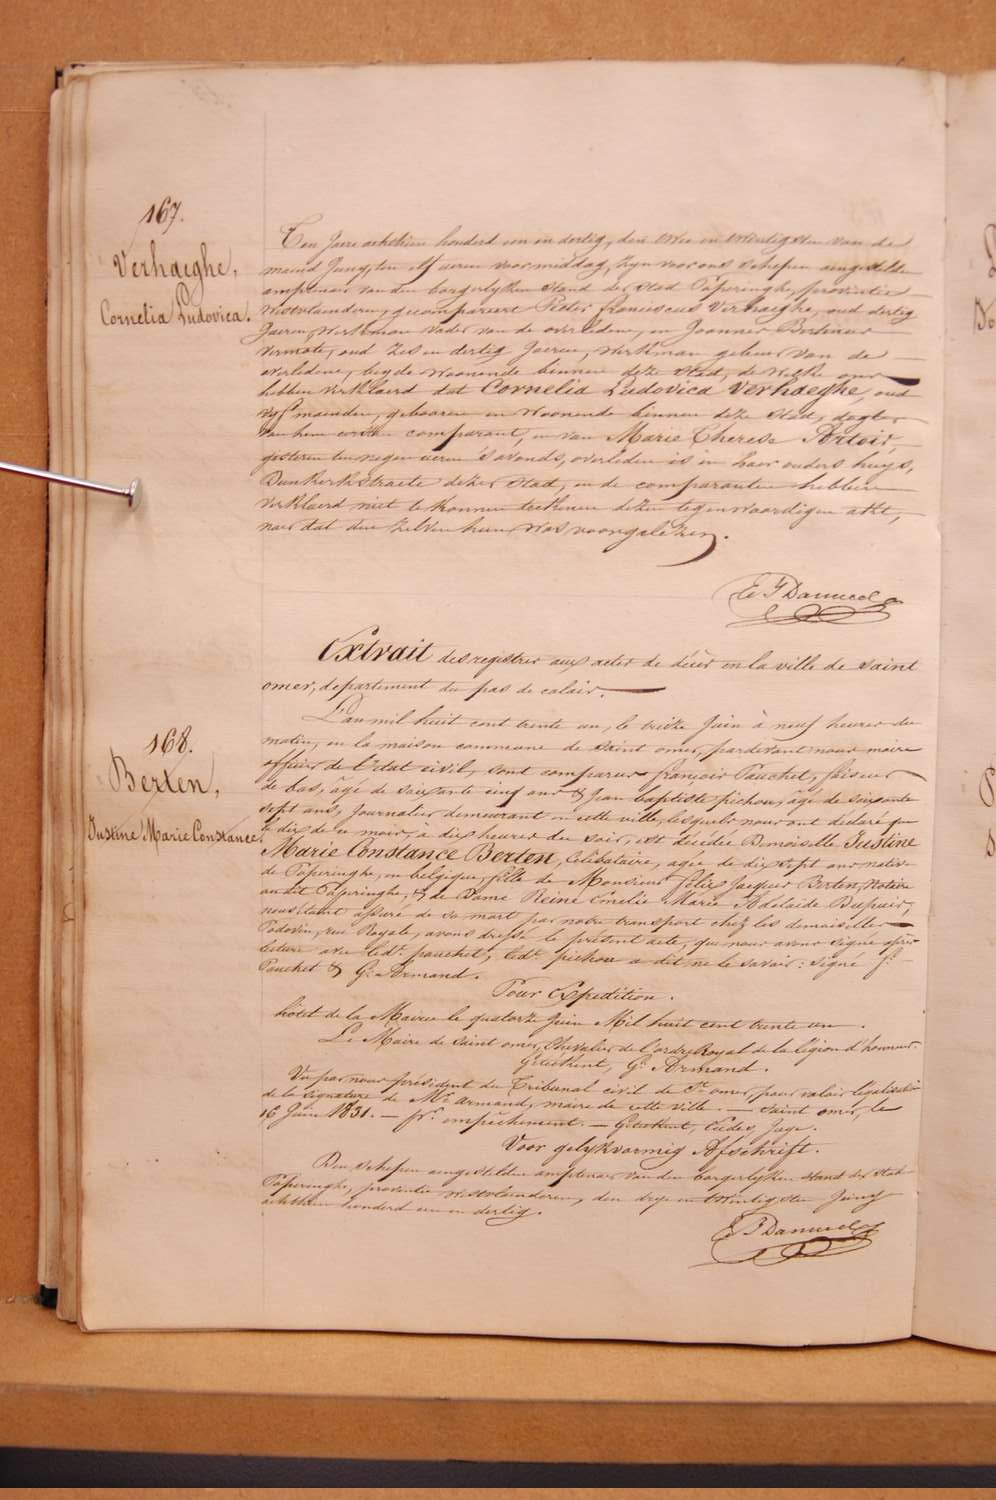 167.
Verhaeghe,
Cornelia Ludovica.
Ten jaere achttien honderd een en dertig, den twee en twintigsten van de
maend Juny, ten elf ueren voormiddag, zyn voor ons schepen aengestelden
amptenaer van den borgerlyken stand der stad Poperinghe, provintie
Westvlaenderen, gecompareert Pieter Franciscus Verhaeghe, oud dertig
Jaeren, Werkman vader van de overledene, en Joannes
oud zes en dertig Jaeren, Werkman gebuer van de
overledene, beyde woonende binnen deze stad, de welke ons
hebben verklaerd dat Cornelia Ludovica Verhaeghe, oud
vyf maenden, gebooren en woonende binnen deze stad, dogter
van den eersten comparant, en van Marie Therese Artoir,
gisteren ten negen ueren s'avonds, overleden is in haer ouders huys,
Dunkerkstraete dezer stad, en de comparanten hebben
verklaerd niet te konnen teekenen dezen tegenwoordigen akte,
naer dat den zelven hun was voorgelezen.
Extrait des registres aux actes de décès en la ville de Saint
omer, département du pas de calais.
168.
Berten,
Justine Marie Constance.
L'an mil huit cent trente un, le treize Juin à neuf heures du
matin, en la maison commune de Saint omer, pardevant nous maire
officier de l'état civil, sont comparus françois Pauchet, faiseur
de bas, âgé de soixante cinq ans & Jean baptiste pichon, âgé de soixante
sept ans, Journalier demeurant en cette ville, lesquels nous ont déclaré que
le dix de ce mois, à dix heures du soir, est décédée Demoiselle Justine
Marie Constance Berten, Célibataire, agée de dix sept ans native
de Poperinghe, en belgique, fille de Monsieur félix Jacques Berten, Notaire
au dit Poperinghe, & de Dame Reine Emélie Marie Adelaïde Dupuis,
nous étant assuré de sa mort par notre transport chez les demoiselles
rue Royale, avons dressé le présent acte, que nous avons signé après
lecture avec led. pauchet, led. pichon a dit ne le savoir: signé f.
Pauchet & G. Armand.
Pour Expédition.
hôtel de la Mairie le quatorze Juin Mil huit cent trente un.
Le Maire de Saint omer, Chevalier de l'ordre Royal de la légion d'honneur.
Getekent, G. Armand.
Vu par nous président du Tribunal civil de St. omer, pour valoir légalisation
de la signature de Mr. Armand, maire de cette ville. — Saint omer, le
16 Juin 1831. — pr. empêchement. — Getekent, Juge.
Voor gelykvormig Afschrift.
Den schepen aengestelden amptenaer van den borgerlyken stand der stad
Poperinghe, provintie Westvlaenderen, den dry en twintigsten Juny
achttien honderd een en dertig.